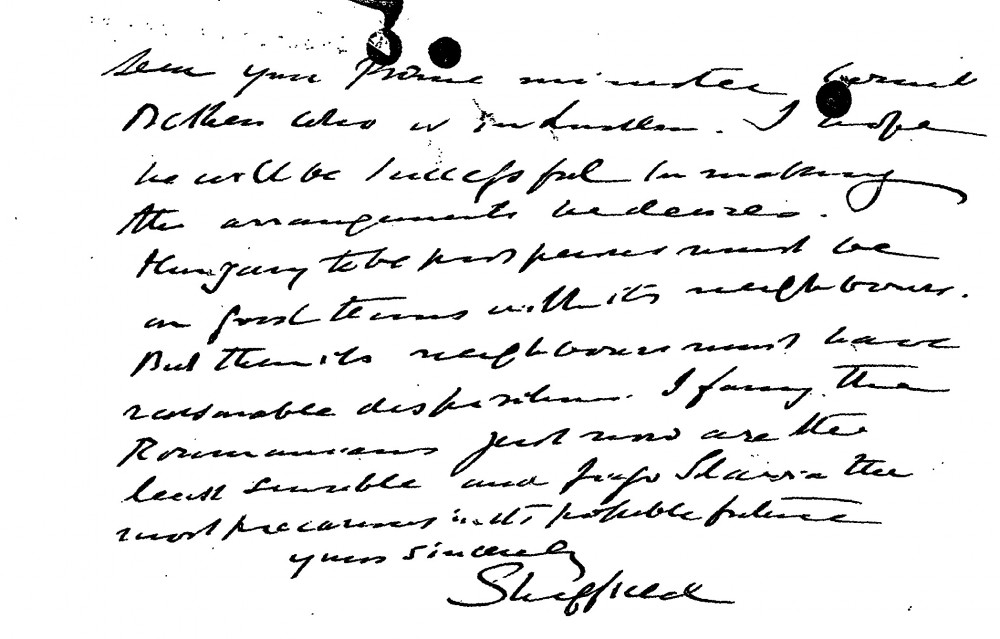 seen your Prime minister Count
Bethlen who is in London. I hope
he will be successful in making
the arrangements he desires.
Hungary to be prosperous must be
on good terms with its neighbours.
But then its neighbours must have
reasonable dispositions. I fancy the
Roumanians just now are the
least sensible and Jugo Slavia the
most precarious in its possible future
yours sincerely
Sheffield